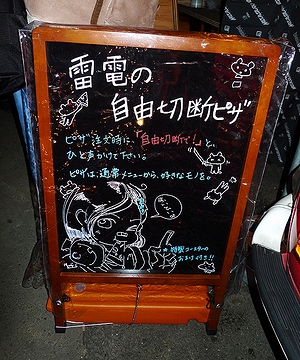 雷電の
自由切断ピザ
ピザ注文時に、「自由切断で！」と、
ひと声かけて下さい。
ピザは、通常メニューから、好きなモノを。
特製コースターの
おまけ付き!!